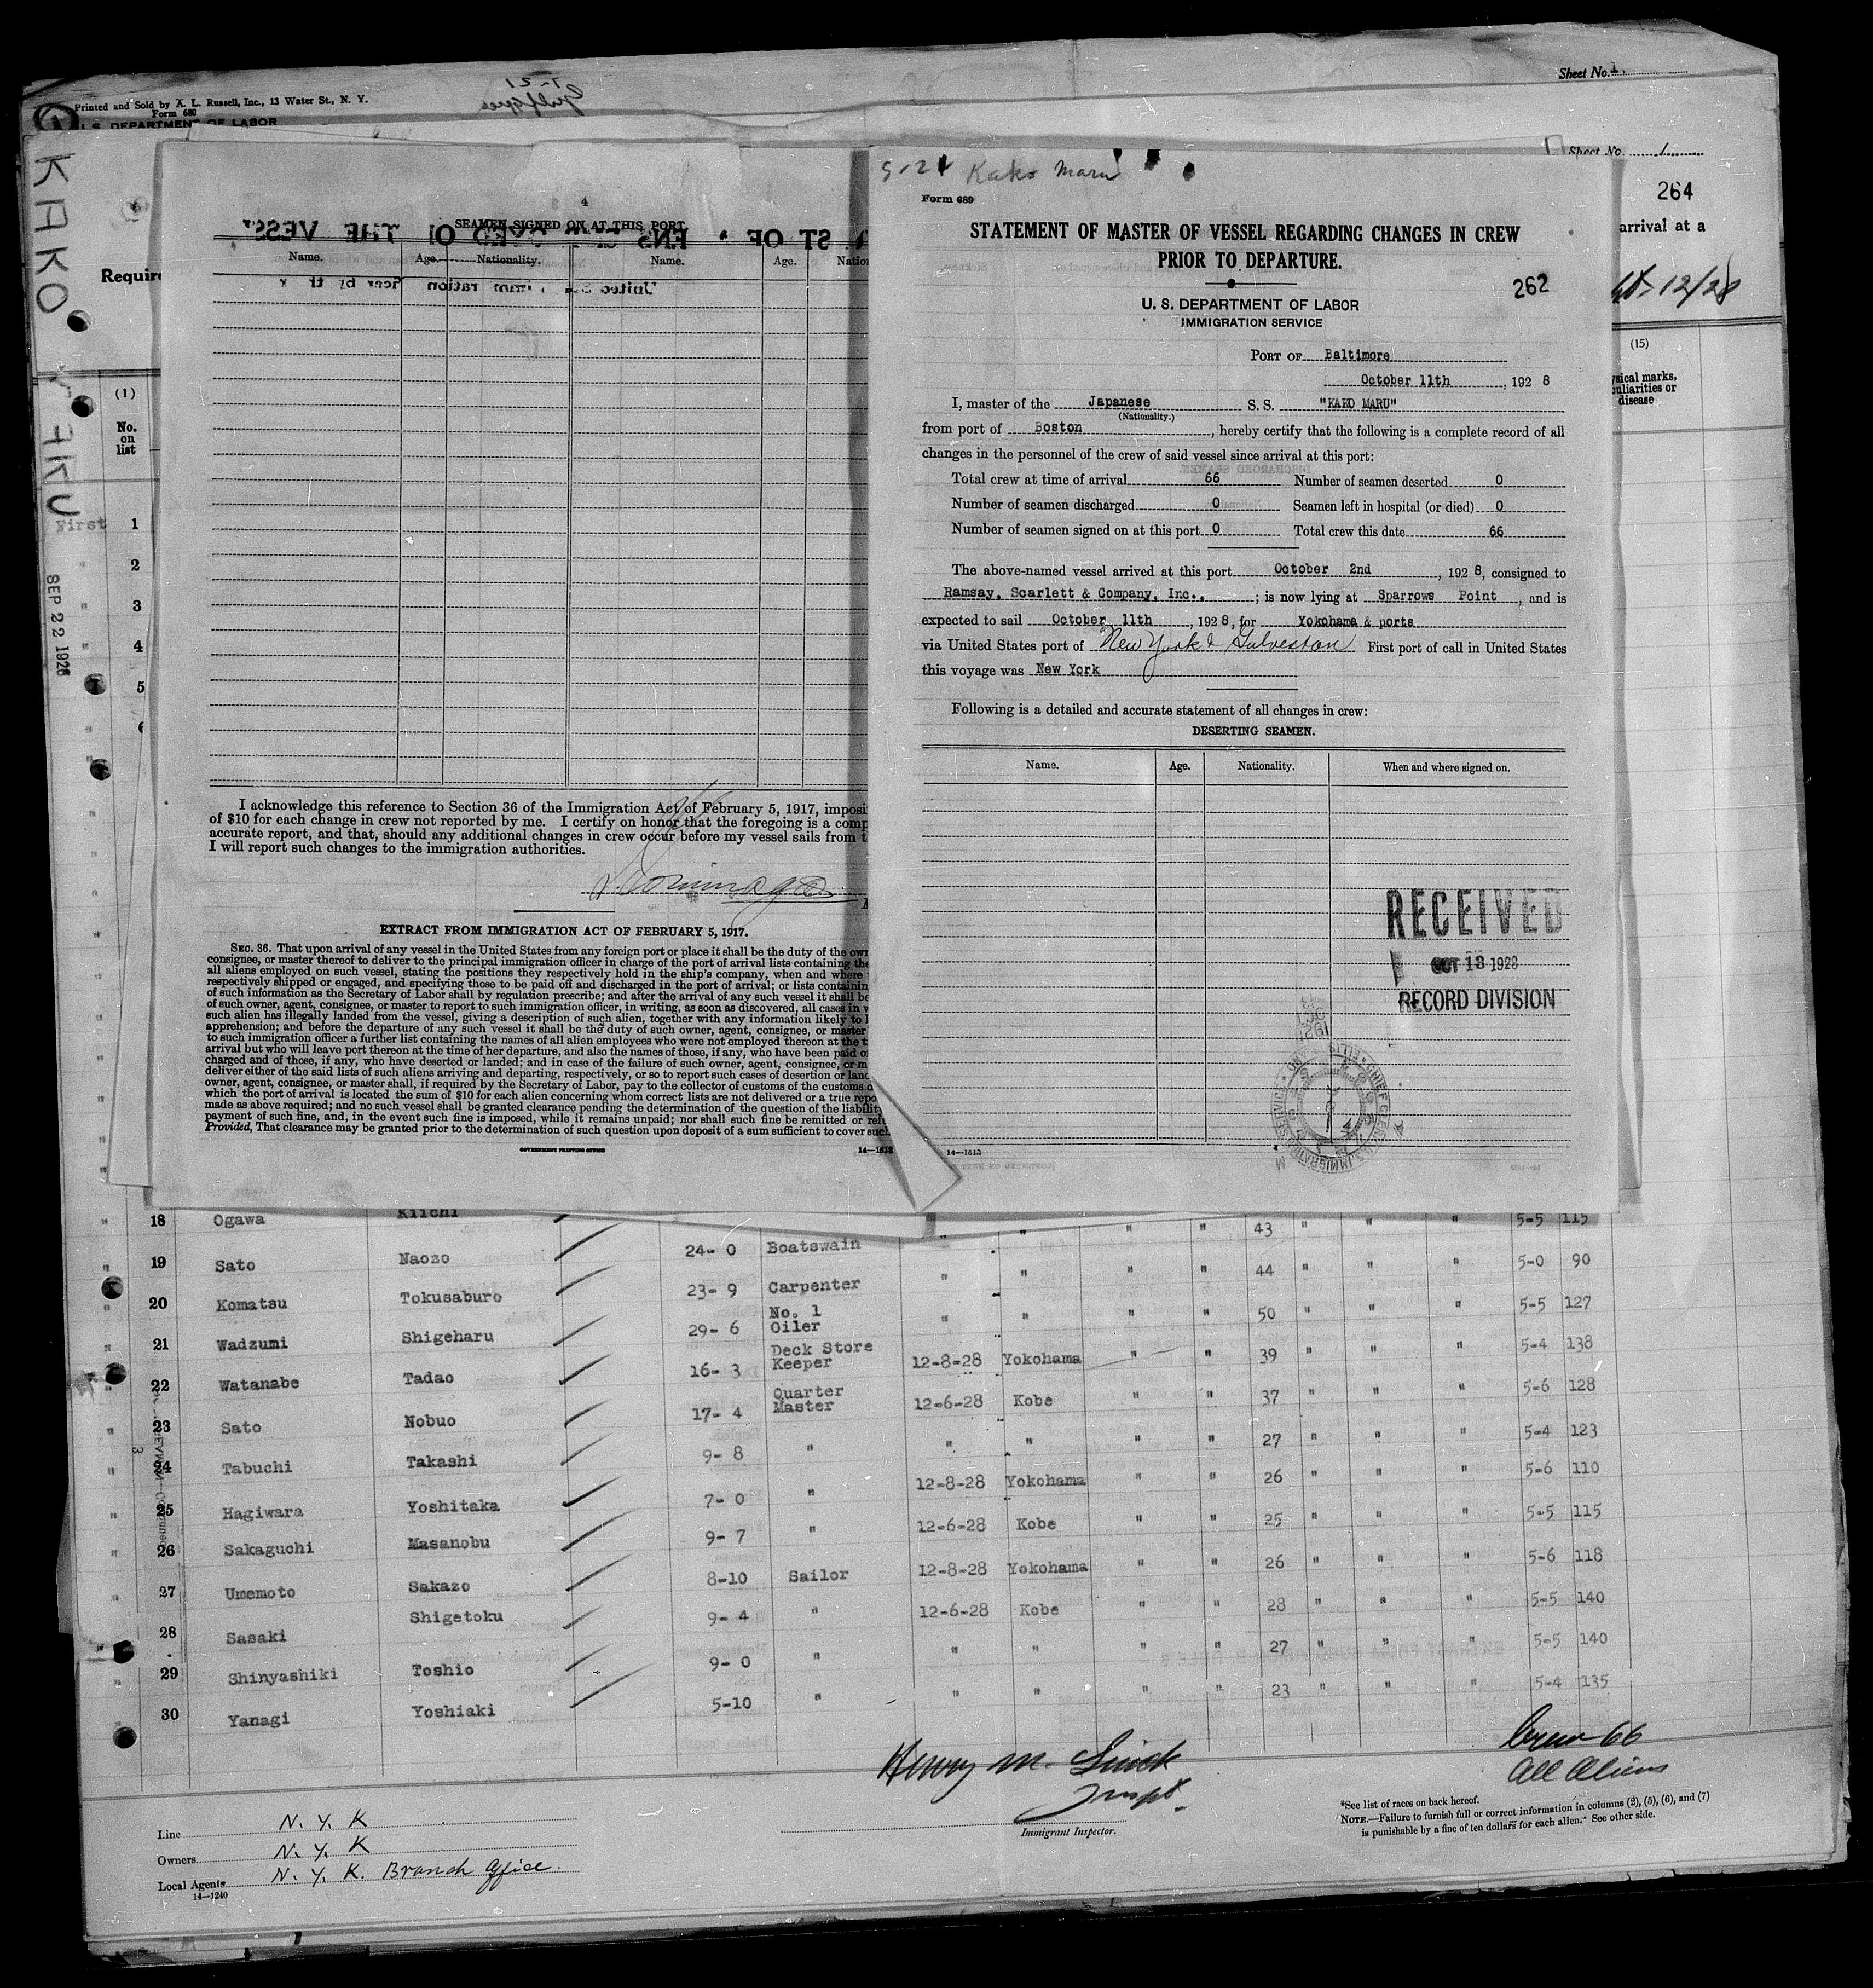 Printed and Sold by A. L. Russell, Inc., 13 Water St., N. Y.
Form 680
U. S. DEPARTMENT OF LABOR
Sheet No. 1.
Sheet No. 1
264
arrival at a
KAKO MARU
Require
(1)
No.
on
list
(15)
ysical marks,
culiarities or
disease
SEP 22 1928
First 1
" 2
" 3
" 4
5
4
SEAMEN SIGNED ON AT THIS PORT
Name. Age. Nationality. Name. Age. Natio
I acknowledge this reference to Section 36 of the Immigration Act of February 5, 1917, imposi
of $10 for each change in crew not reported by me. I certify on honor that the foregoing is a comp
accurate report, and that, should any additional changes in crew occur before my vessel sails from t
I will report such changes to the immigration authorities.
EXTRACT FROM IMMIGRATION ACT OF FEBRUARY 5, 1917.
SEC. 36. That upon arrival of any vessel in the United States from any foreign port or place it shall be the duty of the own
consignee, or master thereof to deliver to the principal immigration officer in charge of the port of arrival lists containing the
all aliens employed on such vessel, stating the positions they respectively hold in the ship's company, when and where
respectively shipped or engaged, and specifying those to be paid off and discharged in the port of arrival; or lists containin
of such information as the Secretary of Labor shall by regulation prescribe; and after the arrival of any such vessel it shall be
of such owner, agent, consignee, or master to report to such immigration officer, in writing, as soon as discovered, all cases in w
such alien has illegally landed from the vessel, giving a description of such alien, together with any information likely to l
apprehension; and before the departure of any such vessel it shall be the duty of such owner, agent, consignee, or master
to such immigration officer a further list containing the names of all alien employees who were not employed thereon at the t
arrival but who will leave port thereon at the time of her departure, and also the names of those, if any, who have been paid o
charged and of those, if any, who have deserted or landed; and in case of the failure of such owner, agent, consignee, or m
deliver either of the said lists of such aliens arriving and departing, respectively, or so to report such cases of desertion or land
owner, agent, consignee, or master shall, if required by the Secretary of Labor, pay to the collector of customs of the customs d
which the port of arrival is located the sum of $10 for each alien concerning whom correct lists are not delivered or a true repo
made as above required; and no such vessel shall be granted clearance pending the determination of the question of the liability
payment of such fine, and, in the event such fine is imposed, while it remains unpaid; nor shall such fine be remitted or ref
Provided, That clearance may be granted prior to the determination of such question upon deposit of a sum sufficient to cover such
GOVERNMENT PRINTING OFFICE 14—1613
Kako Maru
Form 689
STATEMENT OF MASTER OF VESSEL REGARDING CHANGES IN CREW
PRIOR TO DEPARTURE.
262
U. S. DEPARTMENT OF LABOR
IMMIGRATION SERVICE
PORT OF Baltimore
October 11th, 1928
I, master of the Japanese S. S. "KAKO MARU"
(Nationality.)
from port of Boston, hereby certify that the following is a complete record of all
changes in the personnel of the crew of said vessel since arrival at this port:
Total crew at time of arrival 66 Number of seamen deserted 0
Number of seamen discharged 0 Seamen left in hospital (or died) 0
Number of seamen signed on at this port 0 Total crew this date 66
The above-named vessel arrived at this port October 2nd, 1928, consigned to
Ramsay, Scarlett & Company, Inc.,; is now lying at Sparrows Point, and is
expected to sail October 11th, 1928, for Yokohama & ports
via United States port of New York & Galveston First port of call in United States
this voyage was New York
Following is a detailed and accurate statement of all changes in crew:
DESERTING SEAMEN.
Name. Age. Nationality. When and where signed on.
RECEIVED
OCT 13 1928
RECORD DIVISION
14—1613
" 18 Ogawa Kiichi " " " " 43 " " " 5-5 115
" 19 Sato Naozo 24- 0 Boatswain " " " " 44 " " " 5-0 90
" 20 Komatsu Tokusaburo 23- 9 Carpenter " " " " 50 " " " 5-5 127
" 21 Wadzumi Shigeharu 29- 6 No. 1 Oiler 12-8-28 Yokohama " " 39 " " " 5-4 138
" 22 Watanabe Tadao 16- 3 Deck Store Keeper 12-6-28 Kobe " " 37 " " " 5-6 128
" 23 Sato Nobuo 17- 4 Quarter Master " " " " 27 " " " 5-4 123
" 24 Tabuchi Takashi 9- 8 " 12-8-28 Yokohama " " 26 " " " 5-6 110
" 25 Hagiwara Yoshitaka 7- 0 " 12-6-28 Kobe " " 25 " " " 5-5 115
" 26 Sakaguchi Masanobu 9- 7 " 12-8-28 Yokohama " " 26 " " " 5-6 118
" 27 Umemoto Sakazo 8-10 Sailor 12-6-28 Kobe " " 28 " " " 5-5 140
" 28 Sasaki Shigetoku 9- 4 " " " " " 27 " " " 5-5 140
" 29 Shinyashiki Toshio 9- 0 " " " " " 23 " " " 5-4 135
30 Yanagi Yoshiaki 5-10 "
Crew 66
All Aliens
Immigrant Inspector.
*See list of races on back hereof.
NOTE.—Failure to furnish full or correct information in columns (2), (5), (6), and (7)
is punishable by a fine of ten dollars for each alien. See other side.
Line N. Y. K
Owners N. Y. K
Local Agents N. Y. K. Branch Office.
14—1240